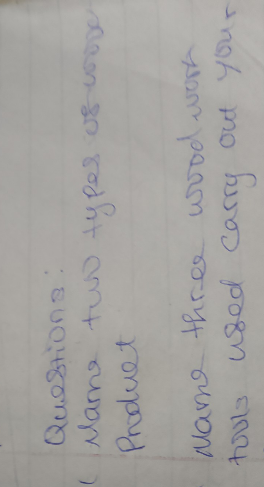 Questions:
( Name two types of wood
Product
Name three wood work
tools used carry out your